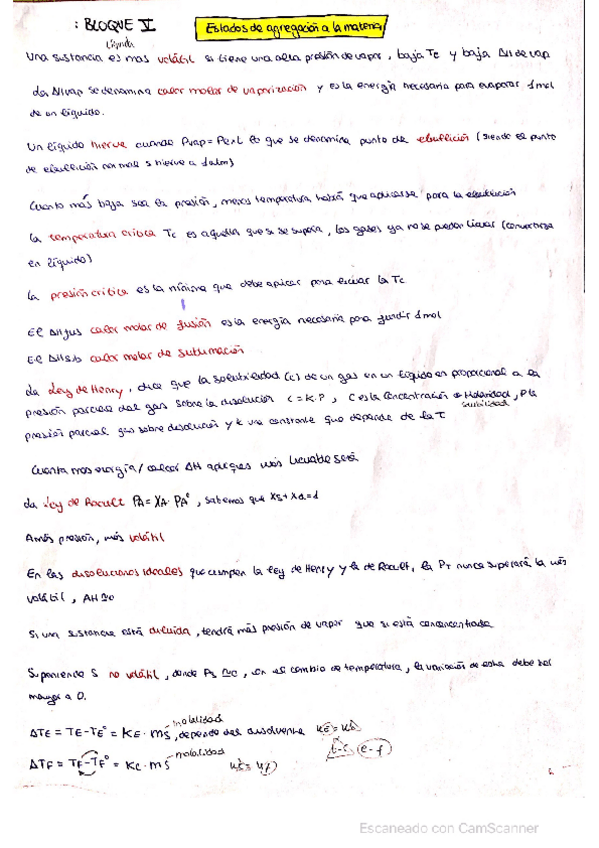 : BLOQUE V
Estados de agregación a la materia
líquida
Una sustancia es mas volátil si tiene una alta presión de vapor, baja Tc y baja ΔH de vap
La ΔHvap se denomina calor molar de vaporización y es la energía necesaria para evaporar 1 mol
de un líquido.
Un líquido hierve cuando Pvap = Pext lo que se denomina punto de ebullición (siendo el punto
de ebullición normal si hierve a 1 atm)
Cuanto más baja sea la presión, menos temperatura habrá que aplicarse para la ebullición
La temperatura crítica Tc es aquella que si se supera, los gases ya no se pueden licuar (convertirse
en líquido)
La presión crítica es la mínima que debe aplicar para licuar la Tc
El ΔHfus calor molar de fusión es la energía necesaria para fundir 1 mol
El ΔHsub calor molar de sublimación
La Ley de Henry, dice que la solubilidad (c) de un gas en un líquido es proporcional a la
presión parcial del gas sobre la disolución C = K.P, C es la concentración o Molaridad, P la
solubilidad
presión parcial gas sobre disolución y k una constante que depende de la T
Cuanta mas energía/calor ΔH apliques más licuable será
La Ley de Raoult PA = XA · PA°, sabemos que Xs + Xd = 1
A más presión, más volátil
En las disoluciones ideales que cumplen la ley de Henry y la de Raoult, la PT nunca superará la más
volátil, ΔH = 0
Si una sustancia está diluida, tendrá más presión de vapor que si está concentrada
Suponiendo S no volátil, donde Ps ≈ 0, en el cambio de temperatura, la variación de esta debe ser
mayor a 0.
ΔTE = TE - TE° = KE · ms, depende del disolvente
molalidad
ΔTF = TF - TF° = Kc · ms
molalidad